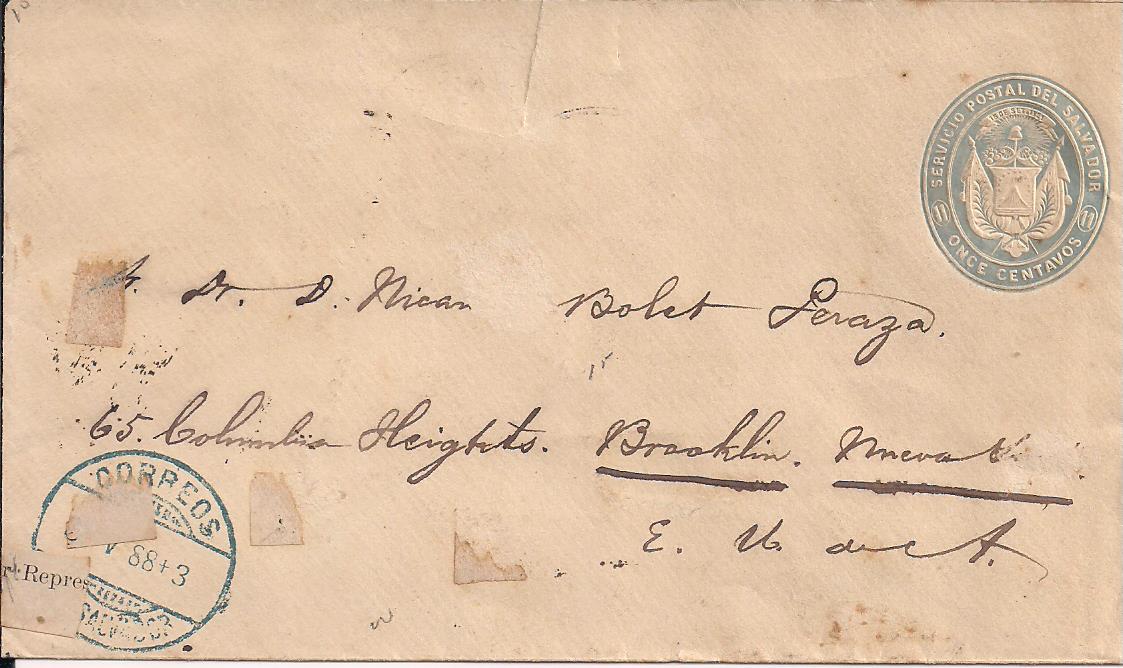 SERVICIO POSTAL DEL SALVADOR
11 11
ONCE CENTAVOS
Dr. D. Nican Bolet Peraza.
15
65. Columbia Heights. Brooklin. Nueva
E. U. de A.
CORREOS
88+3
Repre
SALVADOR